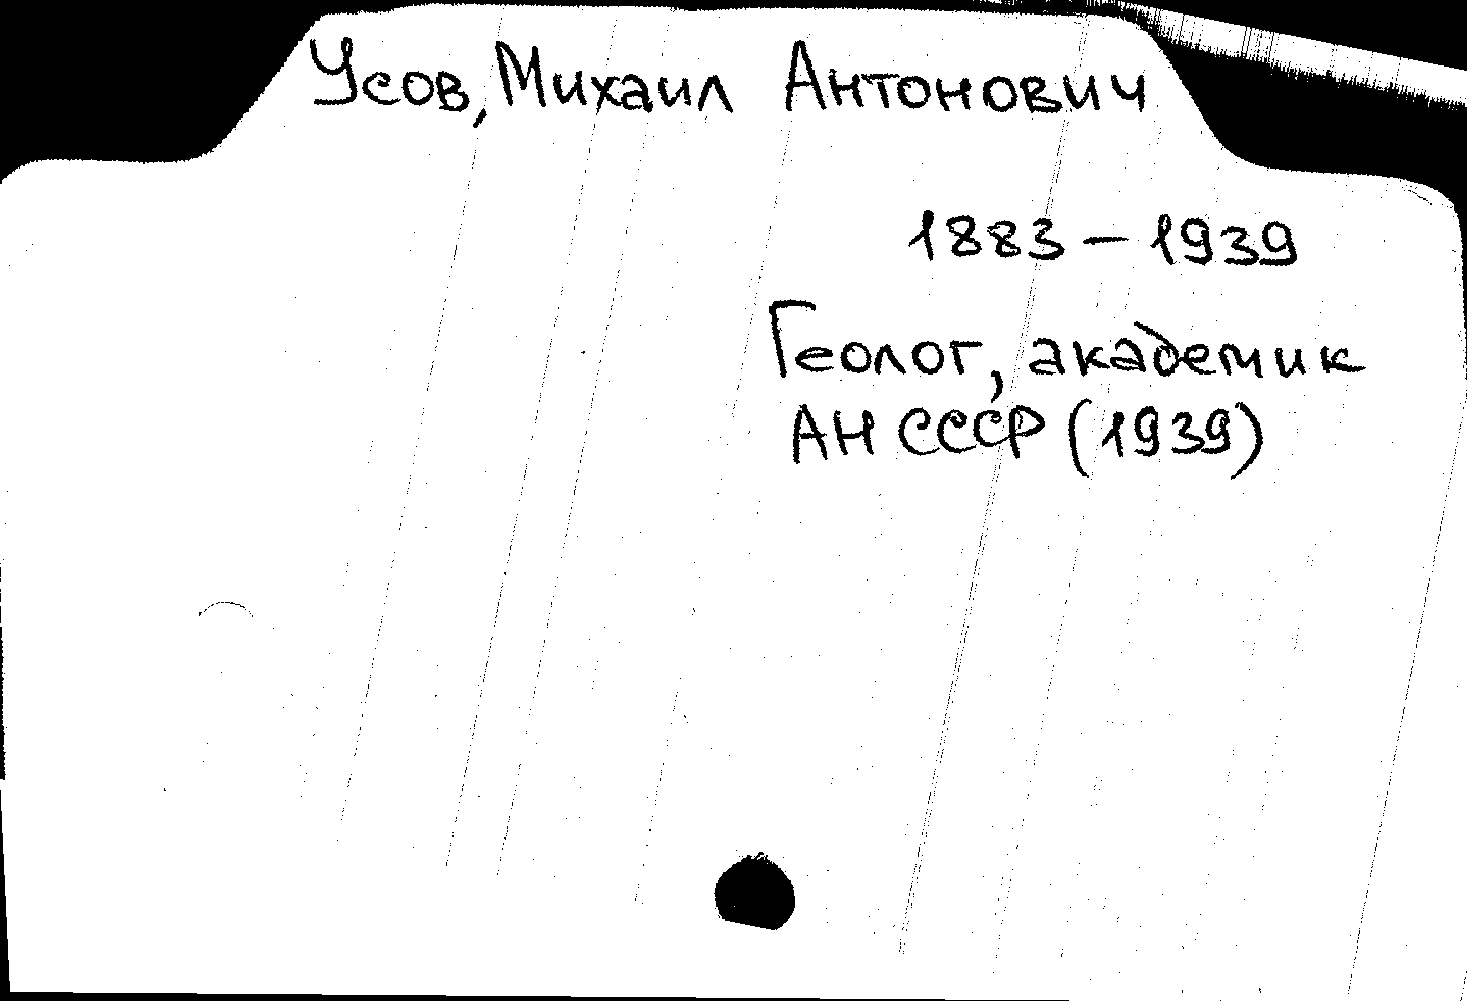 Усов, Михаил Антонович
1883 – 1939
Геолог, академик
АН СССР (1939)